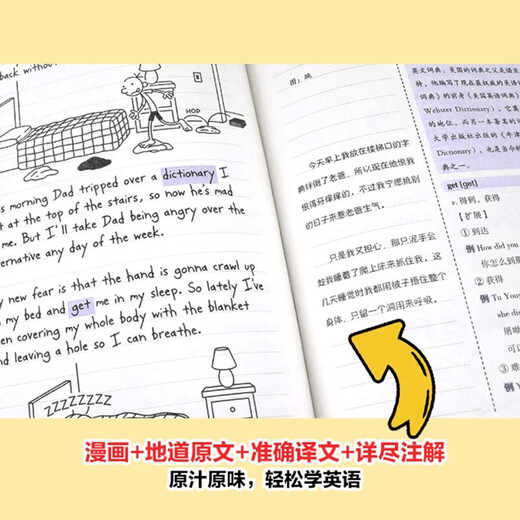 back without
HOP
s morning Dad tripped over a dictionary I
t at the top of the stairs, so now he's mad
me. But I'll take Dad being angry over the
ernative any day of the week.
y new fear is that the hand is gonna crawl up
my bed and get me in my sleep. So lately I've
en covering my whole body with the blanket
nd leaving a hole so I can breathe.
ZZZZZZZZ
图：疏
今天早上我放在楼梯口的字
典绊倒了老爸，所以现在他恨我
恨得牙痒痒的，不过我宁愿挑别
的日子来惹老爸生气。
只是我又担心，那只泥手会
趁我睡着了爬上床来抓住我。这
几天睡觉时我都用被子捂住整个
身体，只留一个洞用来呼吸。
英文词典。美国的词典之父是诺亚
特，他编写了现在最权威的美
词典》的前身《美国英语词典》
Webster Dictionary)，它
的地位。而另一本著名的
大学出版社出版的《牛津
Dictionary)，也是当今
典之一。
get [get]
v. 得到，获得
【扩展】
① 到达
例 How did you
你怎么到那
② 获得
例 Tu You
she did
屠呦
可
③ 难
例
漫画+地道原文+准确译文+详尽注解
原汁原味，轻松学英语